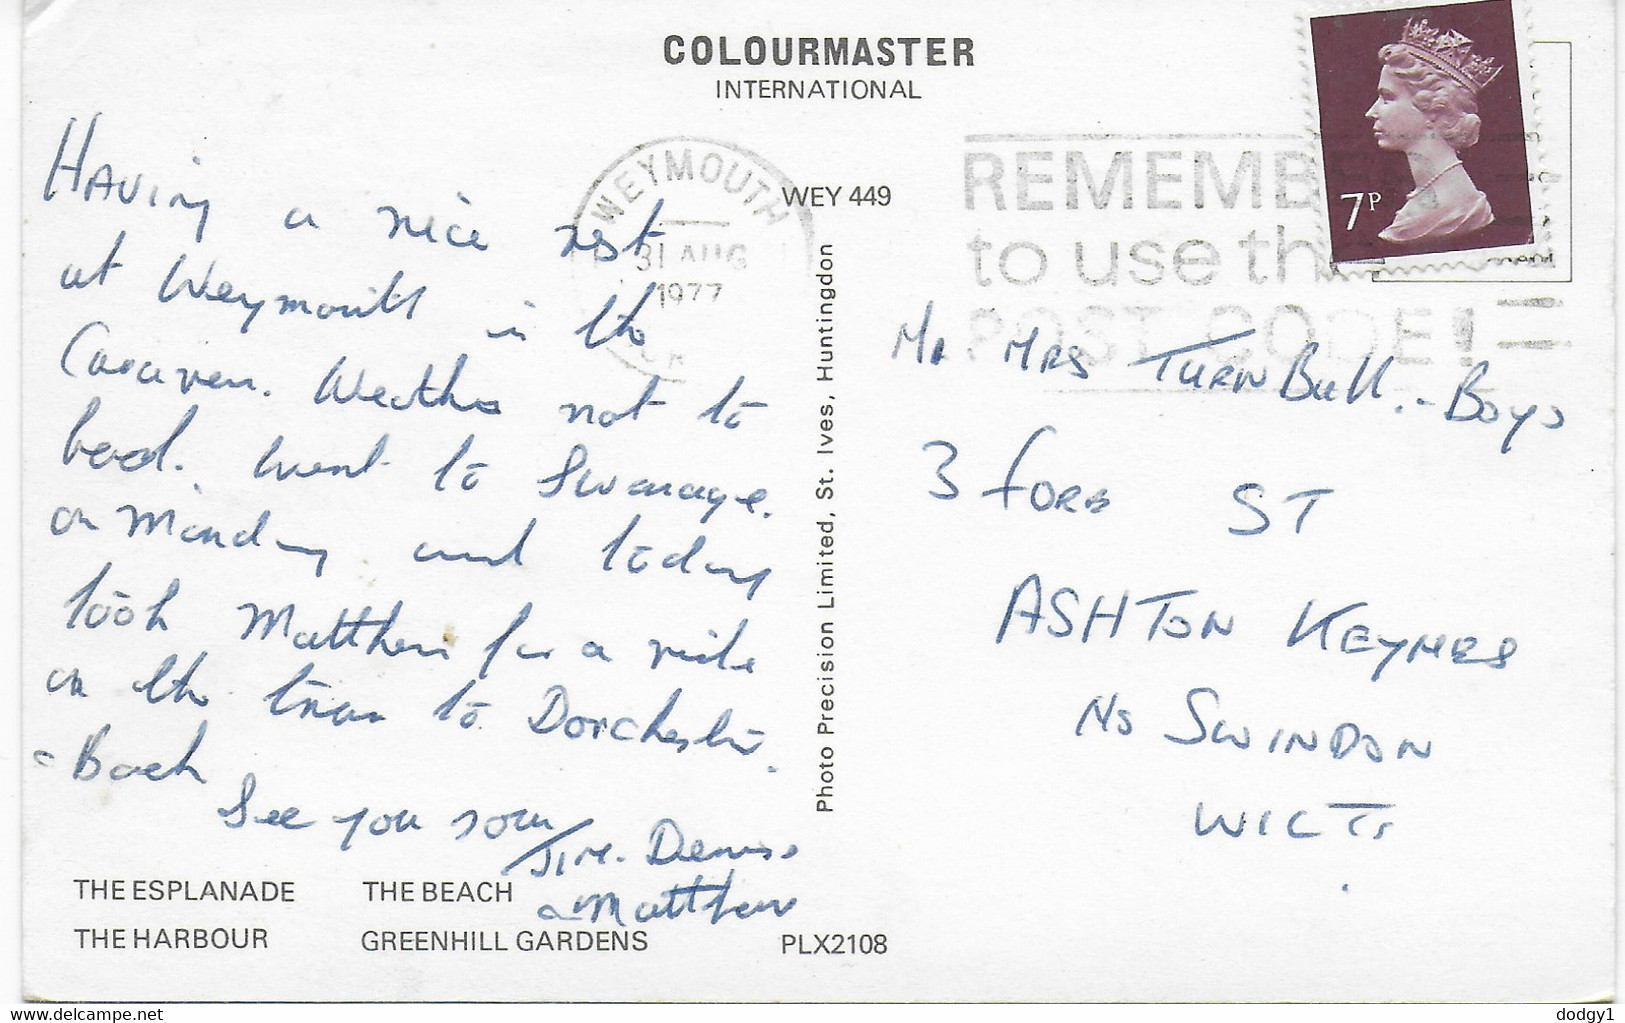 COLOURMASTER
INTERNATIONAL
WEYMOUTH
31 AUG
1977
WEY 449
REMEMBER
to use the
POST CODE!
7P
Having a nice rest
at Weymouth in the
Caravan. Weather not to
bad. Went to Swanage.
on Monday and today
took Matthew for a ride
on the train to Dorchester.
& Back
See you soon
Jim. Denise
& Matthew
Mr Mrs TURNBULL & Boys
3 FORE ST
ASHTON KEYNES
Nr SWINDON
WILTS
THE ESPLANADE THE BEACH
THE HARBOUR GREENHILL GARDENS
PLX2108
Photo Precision Limited, St. Ives, Huntingdon
delcampe.net
dodgy1